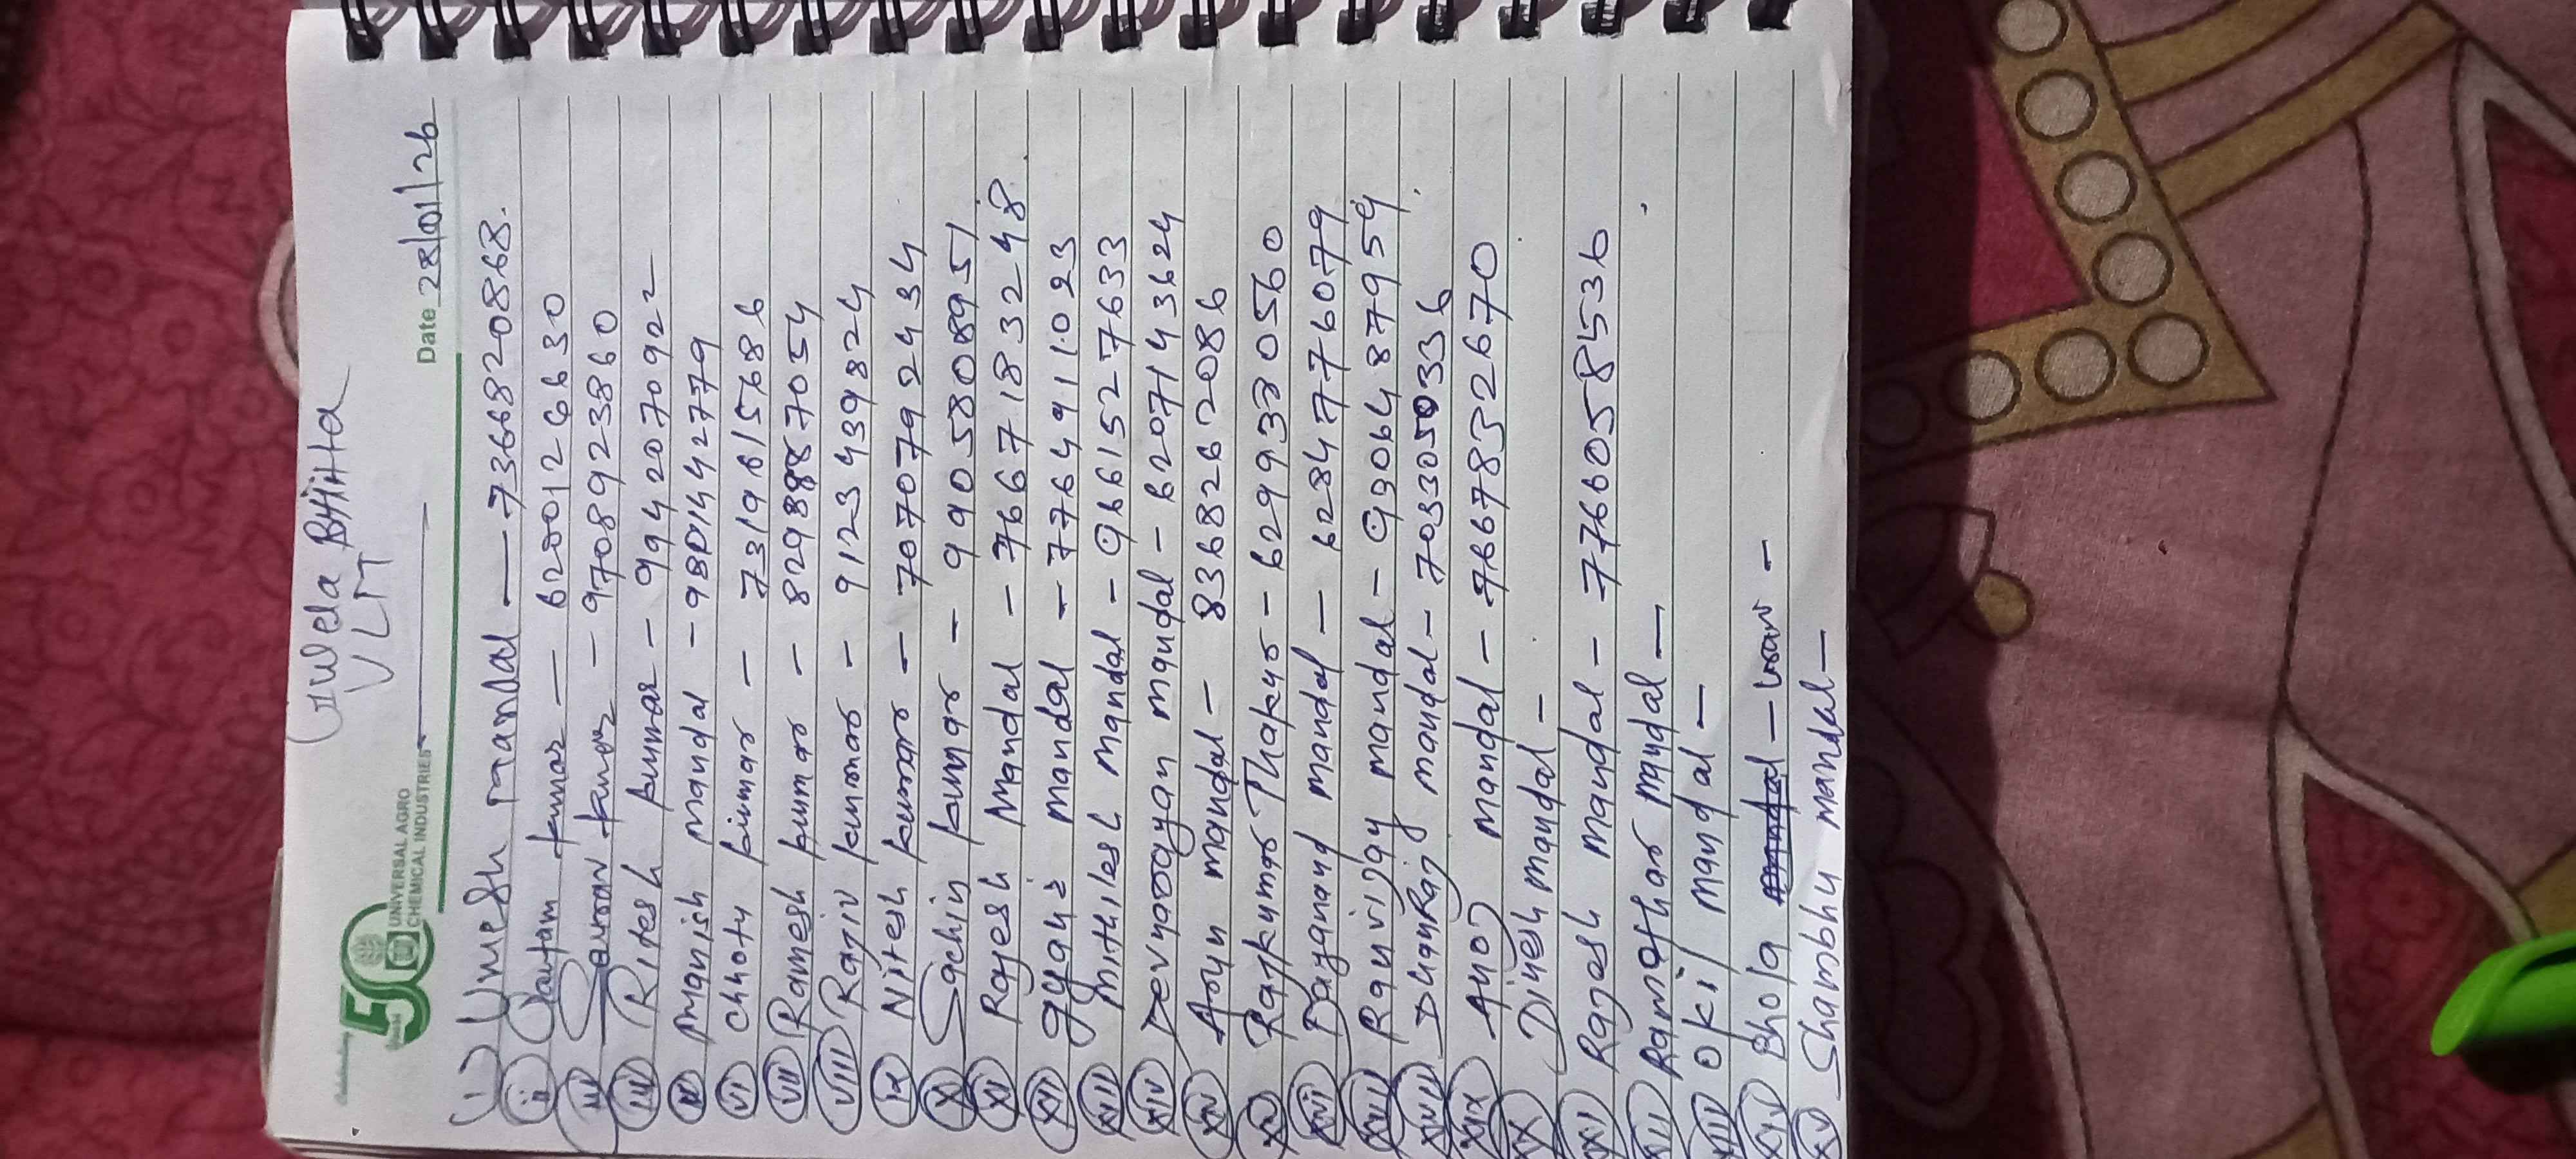 Celebrating
50
UNIVERSAL AGRO
CHEMICAL INDUSTRIES
Bhitta
VLTT
Date 28/01/26
(i) Umesh mandal — 7366820868.
(ii) Gautam kumar — 6200126630
(iii) kumar — 9708923860
(iv) Ritesh kumar — 9942070922
(v) Manish Mandal — 9801442779
(vi) Chhotu kumar — 7319615686
(vii) Ramesh kumar — 8298887054
(viii) Rajiv kumar — 9123439824
(ix) Nitesh kumar — 7070792434
(x) Sachin kumar — 9905808951
(xi) Rajesh Mandal — 7667183248.
(xii) Mandal — 7764911023
(xiii) Mithilesh Mandal — 9661527633
(xiv) Devnarayan Mandal — 6207143624
(xv) Arun mandal — 8368262086
Rajkumar Thakur — 6299330560
Dayanand mandal — 6284776079
Ranvijay mandal — 9906487959
Dhanraj mandal — 7033050336
(xix) Anoj mandal — 7667832670
(xx) Dinesh mandal —
Rajesh mandal — 7766058536
Ramothar mandal —
Okil mandal —
Bhola —
Shambhu mandal —